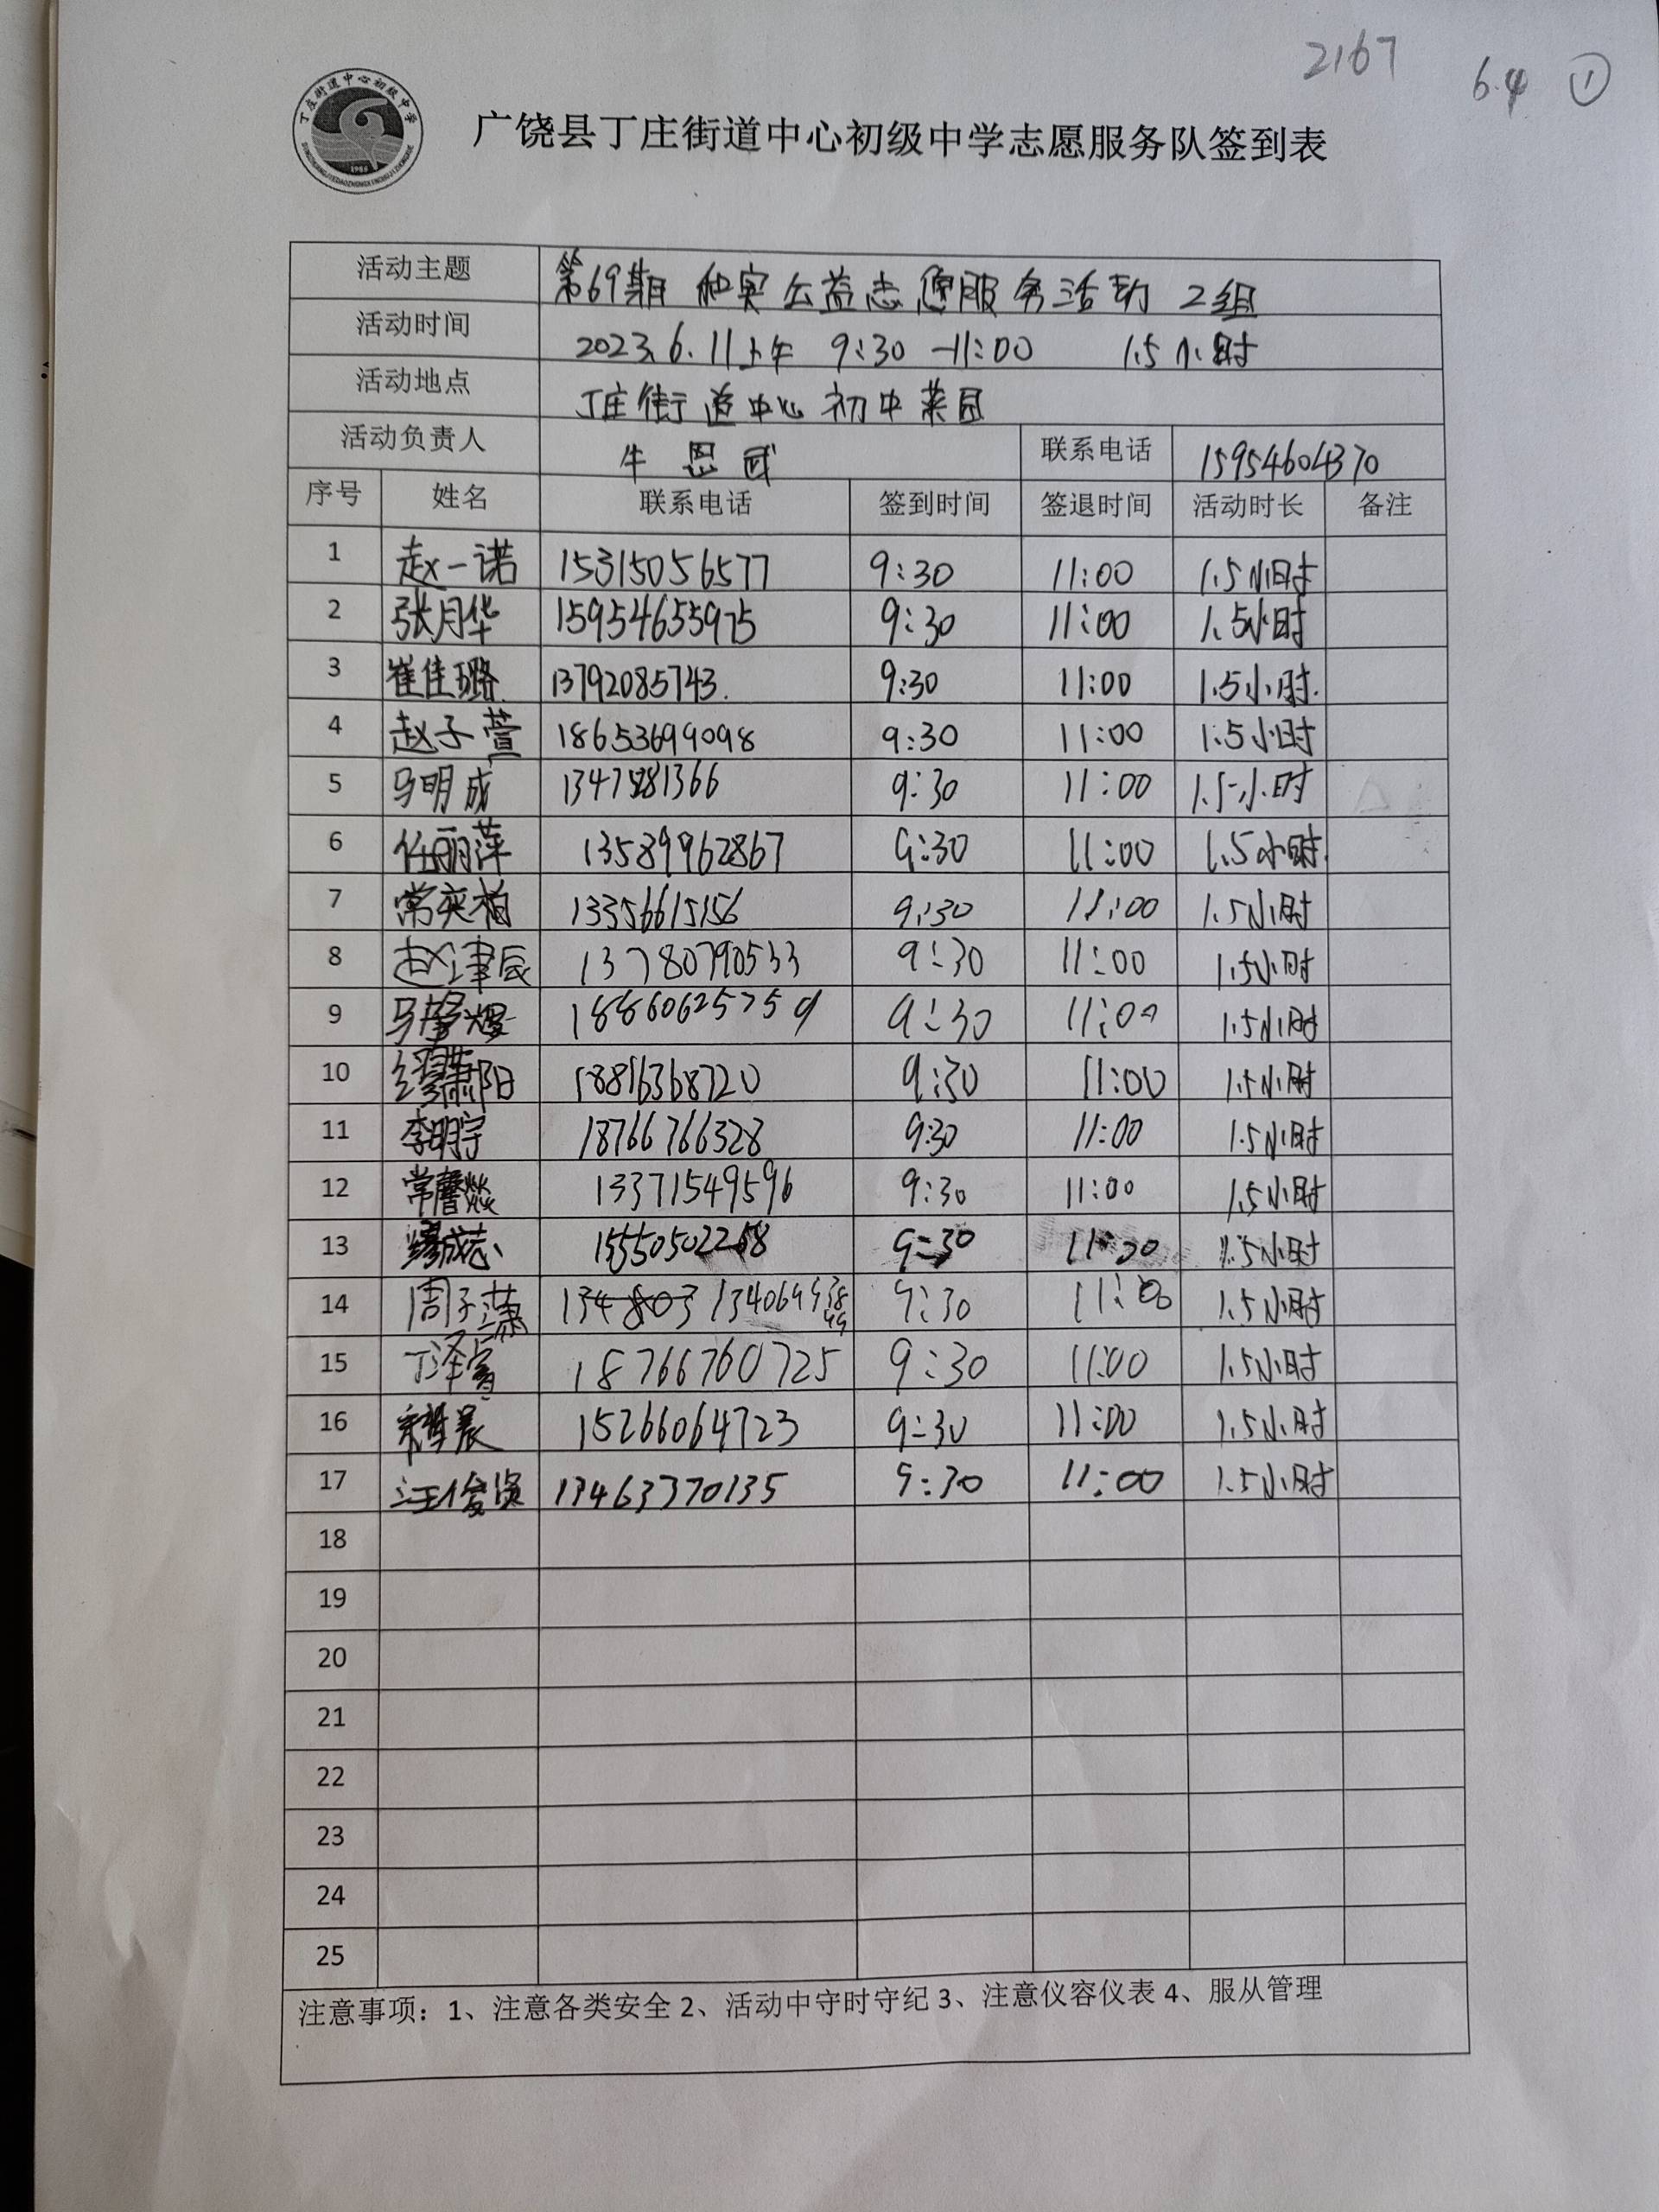 2167
6.4 ①
丁庄街道中心初级中学
1985
广饶县丁庄街道中心初级中学志愿服务队签到表
活动主题 第69期 和实公益志愿服务活动 2组
活动时间 2023.6.11上午 9:30-11:00 1.5小时
活动地点 丁庄街道中心初中菜园
活动负责人 牛恩武 联系电话 15954604370
序号 姓名 联系电话 签到时间 签退时间 活动时长 备注
1 赵一诺 15315056577 9:30 11:00 1.5小时
2 张月华 15954655975 9:30 11:00 1.5小时
3 崔佳璐 13792085743. 9:30 11:00 1.5小时.
4 赵子萱 18653699098 9:30 11:00 1.5小时
5 马明成 9:30 11:00 1.5小时
6 任丽萍 13589962867 9:30 11:00 1.5小时.
7 常奕柏 13356615156 9:30 11:00 1.5小时
8 赵津辰 13780790533 9:30 11:00 1.5小时
9 18860625759 9:30 11:00 1.5小时
10 18816368720 9:30 11:00 1.5小时
11 李明宇 18766766328 9:30 11:00 1.5小时
12 13371549596 9:30 11:00 1.5小时
13 9:30 11:00 1.5小时
14 周子潇 9:30 11:00 1.5小时
15 18766760725 9:30 11:00 1.5小时
16 15266064723 9:30 11:00 1.5小时
17 13463370135 9:30 11:00 1.5小时
18
19
20
21
22
23
24
25
注意事项：1、注意各类安全 2、活动中守时守纪 3、注意仪容仪表 4、服从管理